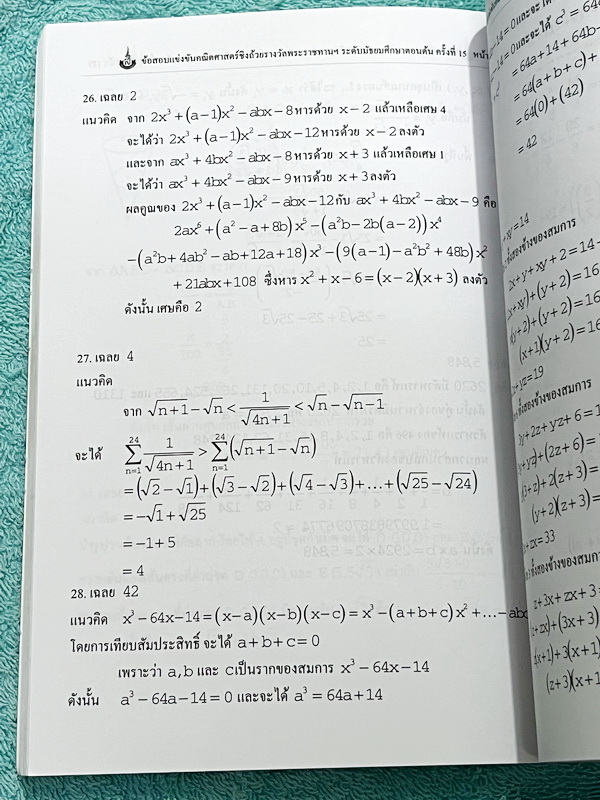 ข้อสอบแข่งขันคณิตศาสตร์ชิงถ้วยรางวัลพระราชทานฯ ระดับมัธยมศึกษาตอนต้น ครั้งที่ 15 หน้า
26. เฉลย 2
แนวคิด จาก 2x³+(a−1)x²−abx−8 หารด้วย x−2 แล้วเหลือเศษ 4
จะได้ว่า 2x³+(a−1)x²−abx−12 หารด้วย x−2 ลงตัว
และจาก ax³+4bx²−abx−8 หารด้วย x+3 แล้วเหลือเศษ 1
จะได้ว่า ax³+4bx²−abx−9 หารด้วย x+3 ลงตัว
ผลคูณของ 2x³+(a−1)x²−abx−12 กับ ax³+4bx²−abx−9 คือ
2ax⁶+(a²−a+8b)x⁵−(a²b−2b(a−2))x⁴
−(a²b+4ab²−ab+12a+18)x³−(9(a−1)−a²b²+48b)x²
+21abx+108 ซึ่งหาร x²+x−6=(x−2)(x+3) ลงตัว
ดังนั้น เศษคือ 2
27. เฉลย 4
แนวคิด
จาก √(n+1)−√n < 1/√(4n+1) < √n−√(n−1)
จะได้ ∑_{n=1}^{24} 1/√(4n+1) > ∑_{n=1}^{24} (√(n+1)−√n)
=(√2−√1)+(√3−√2)+(√4−√3)+…+(√25−√24)
=−√1+√25
=−1+5
=4
28. เฉลย 42
แนวคิด x³−64x−14=(x−a)(x−b)(x−c)=x³−(a+b+c)x²+…−abc
โดยการเทียบสัมประสิทธิ์ จะได้ a+b+c=0
เพราะว่า a,b และ c เป็นรากของสมการ x³−64x−14
ดังนั้น a³−64a−14=0 และจะได้ a³=64a+14
−14=0 และจะได้ c³=64
=64a+14+64b+
=64(a+b+c)+
=64(0)+(42)
=42
+xy=14
ทั้งสองข้างของสมการ
2x+y+xy+2=14+
(y+2)+(y+2)=16
(x+1)(y+2)=16
=19
ทั้งสองข้างของสมการ
3y+2z+yz+6=1
+(2z+6)=
+z)+2(z+3)=
(y+2)(z+3)=
+zx=33
ทั้งสองข้างของสมการ
z+3x+zx+3=
+zx)+(3x+3)
x+1)+3(x+1)
(z+3)(x+1